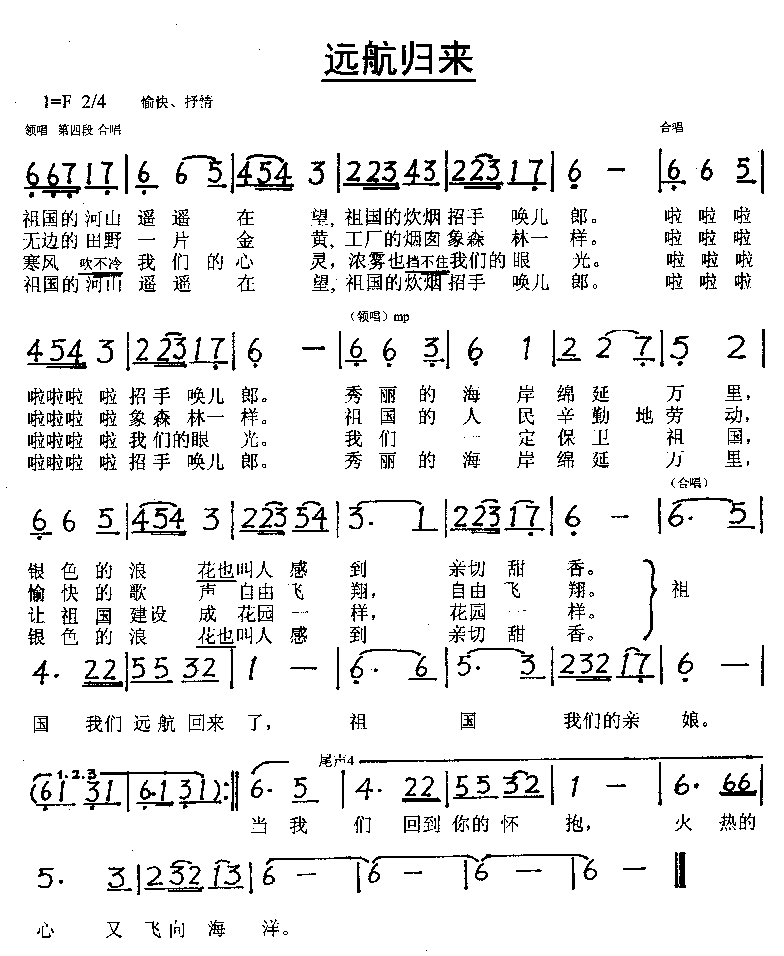 远航归来
1=F 2/4 愉快、抒情
领唱 第四段 合唱 合唱
6 6 7 1 7 | 6 6 5 | 4 5 4 3 | 2 2 3 4 3 | 2 2 3 1 7 | 6 — | 6 6 5
祖国的 河山 遥遥 在 望, 祖国的 炊烟 招手 唤儿 郎。 啦 啦 啦
无边的 田野 一片 金 黄, 工厂的 烟囱 象森 林一 样。 啦 啦 啦
寒风 吹不冷 我们 的心 灵, 浓雾也 挡不住 我们的 眼 光。 啦 啦 啦
祖国的 河山 遥遥 在 望, 祖国的 炊烟 招手 唤儿 郎。 啦 啦 啦
(领唱) mp
4 5 4 3 | 2 2 3 1 7 | 6 — | 6 6 3 | 6 1 | 2 2 7 | 5 2 |
啦啦啦 啦 招手 唤儿 郎。 秀丽的 海 岸 绵延 万 里,
啦啦啦 啦 象森 林一 样。 祖国的 人 民 辛勤 地 劳 动,
啦啦啦 啦 我们的眼 光。 我们 一 定 保卫 祖 国,
啦啦啦 啦 招手 唤儿 郎。 秀丽的 海 岸 绵延 万 里,
(合唱)
6 6 5 | 4 5 4 3 | 2 2 3 5 4 | 3. 1 | 2 2 3 1 7 | 6 — | 6. 5 |
银色的 浪 花也叫人 感 到 亲切 甜 香。 } 祖
愉快的 歌 声 自由 飞 翔, 自由 飞 翔。
让祖国 建设 成 花园 一 样, 花园 一 样。
银色的 浪 花也叫人 感 到 亲切 甜 香。
4. 2 2 | 5 5 3 2 | 1 — | 6. 6 | 5. 3 | 2 3 2 1 7 | 6 — |
国 我们 远航 回来 了, 祖 国 我们的亲 娘。
1.2.3 尾声4
(6 1 3 1 | 6. 1 3 1) :‖ 6. 5 | 4. 2 2 | 5 5 3 2 | 1 — | 6. 6 6 |
当 我 们 回到 你的 怀 抱, 火 热的
5. 3 | 2 3 2 1 3 | 6 — | 6 — | 6 — | 6 — ‖
心 又 飞向 海 洋。